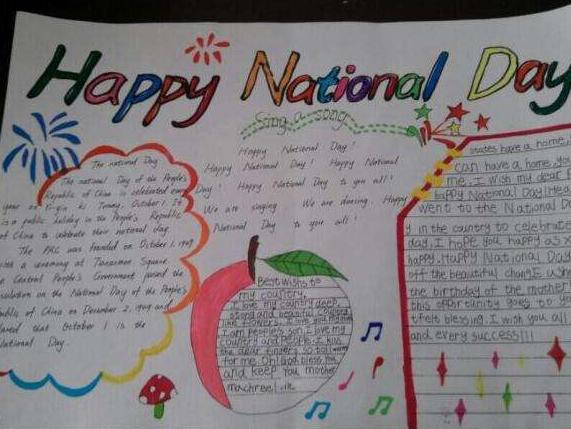 Happy National Day
Sing a song
Happy National Day!
Happy National Day! Happy National
Day! Happy National Day to you all!
We are singing We are dancing. Happy
National Day to you all!
The national Day
The national Day of the People's
Republic of China is celebrated every
year on October 1. It
is a public holiday in the People's Republic
of China to celebrate their national day
The PRC was founded on October 1, 1949
a ceremony at Tiananmen Square.
Central People's Government passed the
Resolution on the National Day of the People's
Republic of China on December 2, 1949 and
that October 1 is the
National Day.
Best wishes to
my country.
I love my country deep,
and beautiful
like flowers. I love you
I am people's so I love my
country and people. I kiss
the dear so tall
for me. Oh! God bless you
and keep you mother
machree!
states have a home,
can have a home, you
me. I wish my dear
happy National Day!
went to the National Day
y in the country to celebrate
day, I hope you happy as
happy. Happy National Day
off the beautiful wish
the birthday of the mother
this opportunity goes to you
blessing. I wish you all
and every success!!!